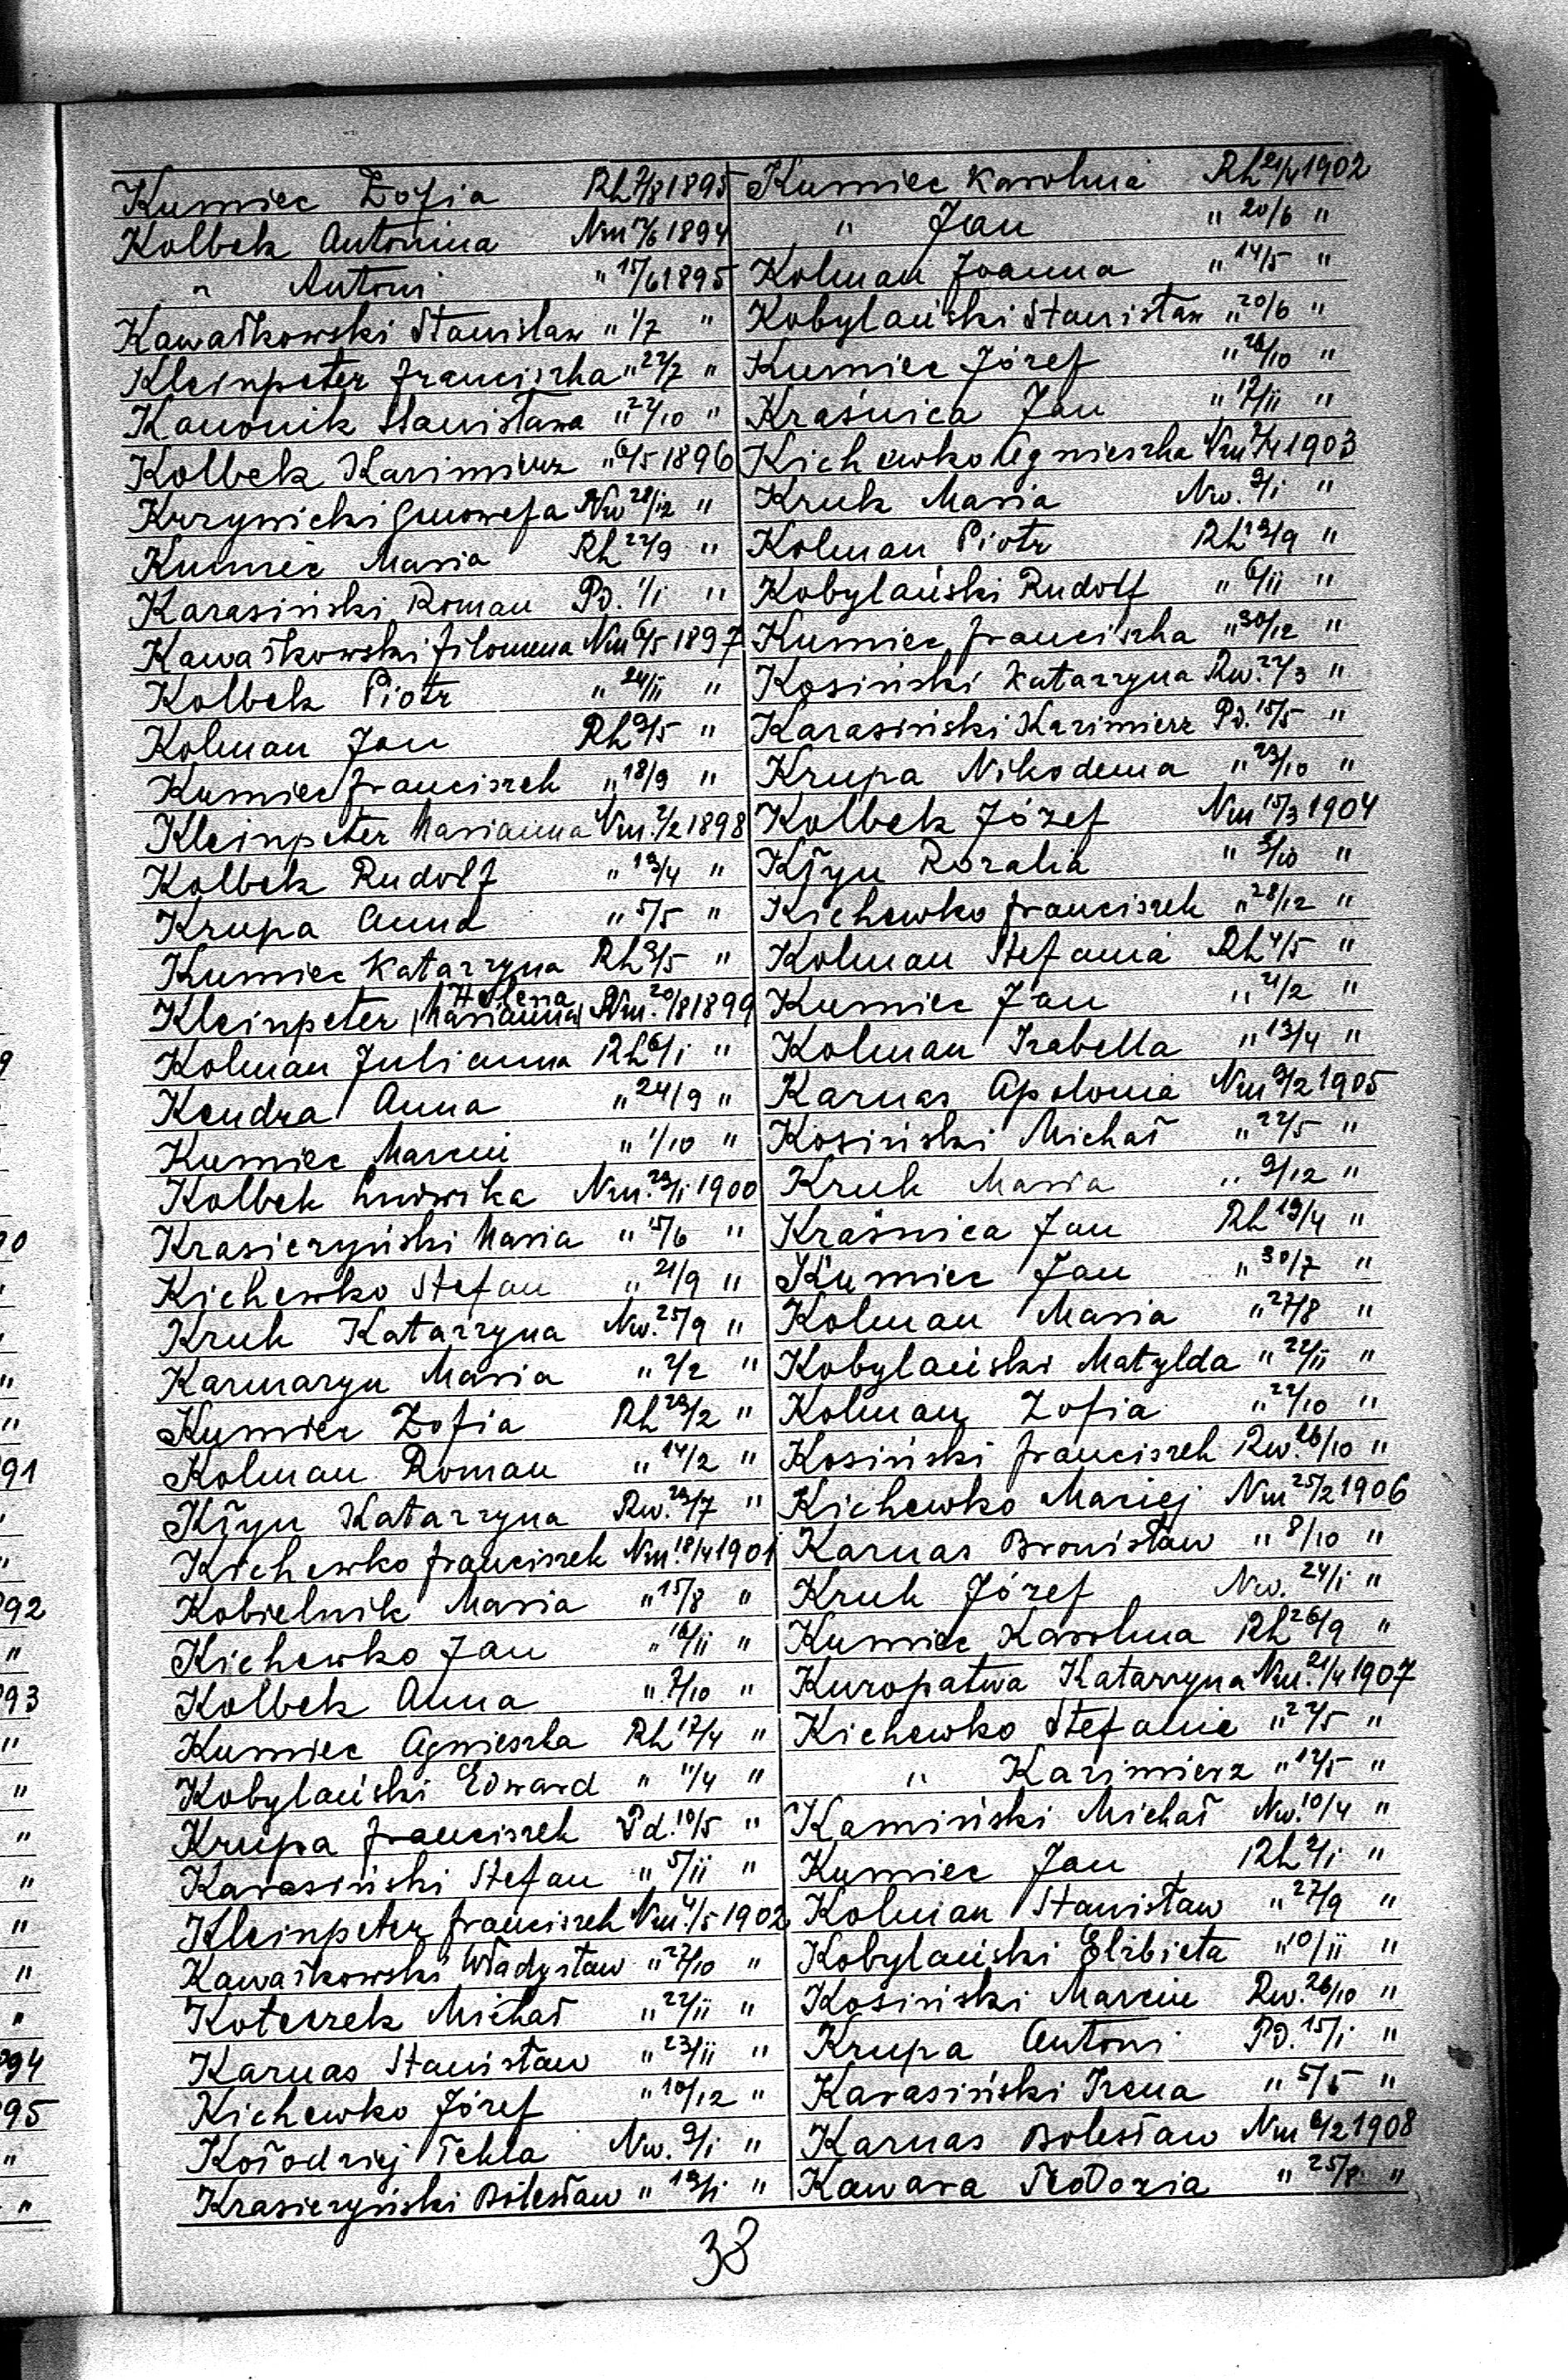 Kumiec Zofia Rh 7/8 1895
Kolbek Antonina Nm 12/6 1894
" Antoni " 15/6 1895
Kawałkowski Stanisław " 1/7 "
Kleinpeter Franciszka " 22/7 "
Kanonik Stanisława " 22/10 "
Kolbek Kazimierz " 6/5 1896
Krzywicki Genowefa Nw 28/12 "
Kumiec Maria Rh 22/9 "
Karasiński Roman Pd. 1/1 "
Kawałkowski Filomena Nm 6/5 1897
Kolbek Piotr " 24/11 "
Kolman Jan Rh 9/5 "
Kumiec Franciszek " 18/9 "
Kleinpeter Marianna Nm. 2/2 1898
Kolbek Rudolf " 19/4 "
Krupa Anna " 5/5 "
Kumiec Katarzyna Rh 2/5 "
Kleinpeter Helena (Marianna) Nm. 20/8 1899
Kolman Julianna Rh 6/1 "
Kendra Anna " 24/9 "
Kumiec Marcin " 1/10 "
Kolbek Ludwika Nm. 29/1 1900
Krasiczyński Maria " 15/6 "
Kichewko Stefan " 21/9 "
Kruk Katarzyna Nw. 25/9 "
Karmazyn Maria " 2/2 "
Kumiec Zofia Rh 29/2 "
Kolman Roman " 14/2 "
Kłyn Katarzyna Rw. 29/7 "
Kichewko Franciszek Nm. 18/4 1901
Kobielnik Maria " 15/8 "
Kichewko Jan " 16/11 "
Kolbek Anna " 7/10 "
Kumiec Agnieszka Rh 17/4 "
Kobylański Edward " 11/4 "
Krupa Franciszek Pd. 10/5 "
Karasiński Stefan " 5/11 "
Kleinpeter Franciszek Nm. 4/5 1902
Kawałkowski Władysław " 27/10 "
Koteczek Michał " 22/11 "
Karnas Stanisław " 23/11 "
Kichewko Józef " 10/12 "
Kołodziej Tekla Nw. 9/1 "
Krasiczyński Bolesław " 19/1 "
Kumiec Karolina Rh 21/4 1902
" Jan " 20/6 "
Kolman Joanna " 14/5 "
Kobylański Stanisław " 20/6 "
Kumiec Józef " 26/10 "
Kraśnica Jan " 17/11 "
Kichewko Agnieszka Nm 7/4 1903
Kruk Maria Nw. 9/1 "
Kolman Piotr Rh 19/9 "
Kobylański Rudolf " 6/11 "
Kumiec Franciszka " 30/12 "
Kosiński Katarzyna Rw. 22/3 "
Karasiński Kazimierz Pd. 15/5 "
Krupa Nikodema " 29/10 "
Kolbek Józef Nm 15/3 1904
Kłyn Rozalia " 5/10 "
Kichewko Franciszek " 28/12 "
Kolman Stefania Rh 4/5 "
Kumiec Jan " 21/2 "
Kolman Izabella " 13/4 "
Karnas Apolonia Nm 9/2 1905
Kosiński Michał " 22/5 "
Kruk Maria " 9/12 "
Kraśnica Jan Rh 19/4 "
Kumiec Jan " 30/7 "
Kolman Maria " 27/8 "
Kobylański Matylda " 22/11 "
Kolman Zofia " 22/10 "
Kosiński Franciszek Rw. 26/10 "
Kichewko Maciej Nm 25/2 1906
Karnas Bronisław " 8/10 "
Kruk Józef Nw. 24/1 "
Kumiec Karolina Rh 26/9 "
Kuropatwa Katarzyna Nm. 21/4 1907
Kichewko Stefanie " 22/5 "
" Kazimierz " 12/5 "
Kamiński Michał Nw. 10/4 "
Kumiec Jan Rh 2/1 "
Kolman Stanisław " 27/9 "
Kobylański Elżbieta " 10/11 "
Kosiński Marcin Rw. 26/10 "
Krupa Antoni Pd. 15/1 "
Karasiński Irena " 5/5 "
Karnas Bolesław Nm 6/2 1908
Kawara Teodozia " 25/8 "
38